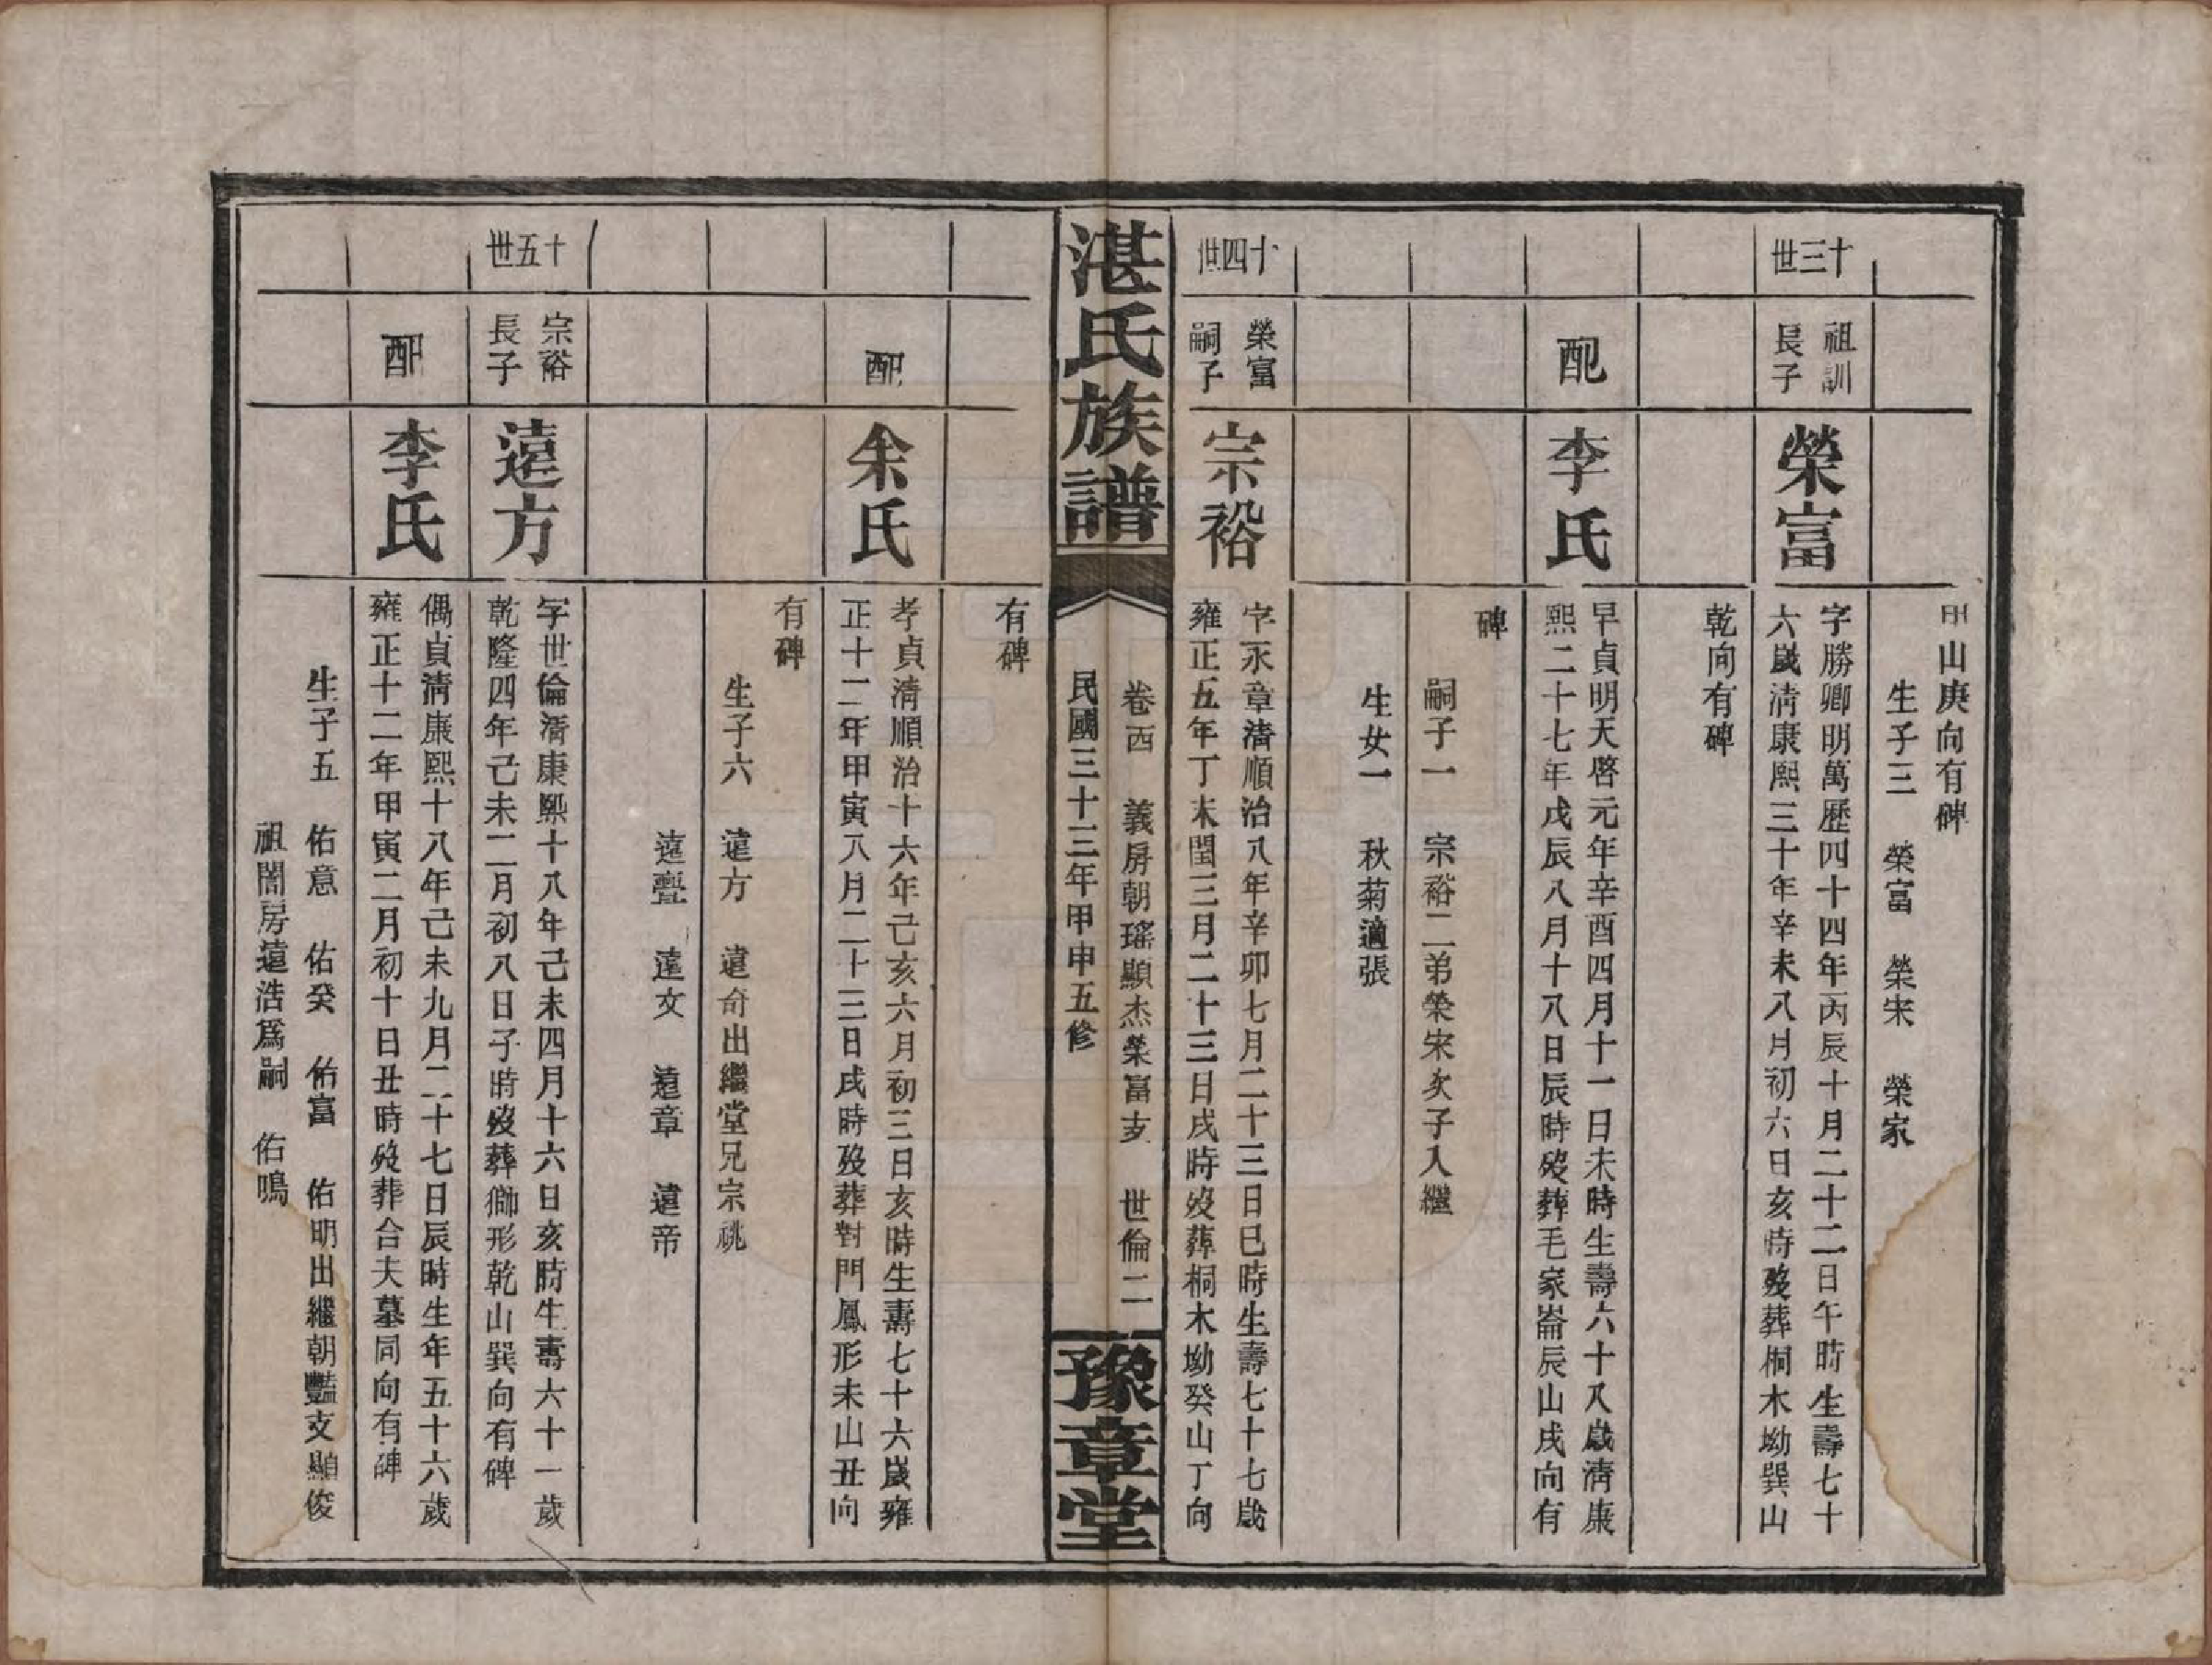 甲山庚向有碑
生子三 榮富 榮宋 榮家
十三世
祖訓
長子
榮富
字勝卿明萬歷四十四年丙辰十月二十二日午時生壽七十
六歲清康熙三十年辛未八月初六日亥時歿葬桐木坳巽山
乾向有碑
配
李氏
早貞明天啓元年辛酉四月十一日未時生壽六十八歲清康
熙二十七年戊辰八月十八日辰時歿葬毛家崙辰山戌向有
碑
嗣子一 宗裕二弟榮宋次子入繼
生女一 秋菊適張
十四世
榮富
嗣子
宗裕
字永章清順治八年辛卯七月二十三日巳時生壽七十七歲
雍正五年丁未閏三月二十三日戌時歿葬桐木坳癸山丁向
湛氏族譜
卷西 義房朝瑤顯杰榮富支 世倫二
民國三十三年甲申五修
豫章堂
有碑
配
余氏
孝貞清順治十六年己亥六月初三日亥時生壽七十六歲雍
正十二年甲寅八月二十三日戌時歿葬對門鳳形未山丑向
有碑
生子六 遠方 遠奇出繼堂兄宗祧
遠豐 遠文 遠章 遠帝
十五世
宗裕
長子
遠方
字世倫清康熙十八年己未四月十六日亥時生壽六十一歲
乾隆四年己未二月初八日子時歿葬獅形乾山巽向有碑
配
李氏
偶貞清康熙十八年己未九月二十七日辰時生年五十六歲
雍正十二年甲寅二月初十日丑時歿葬合夫墓同向有碑
生子五 佑意 佑癸 佑富 佑明出繼朝豔支顯俊
祖閣房遠浩爲嗣 佑鳴